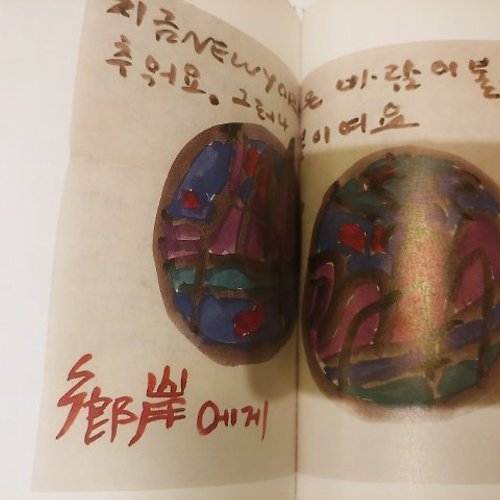 지금NEWYORK은 바람이불
추워요. 그러나
봄이여요
鄕岸에게